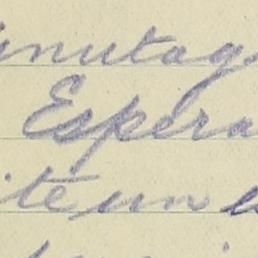 inutag
Espera
ite un